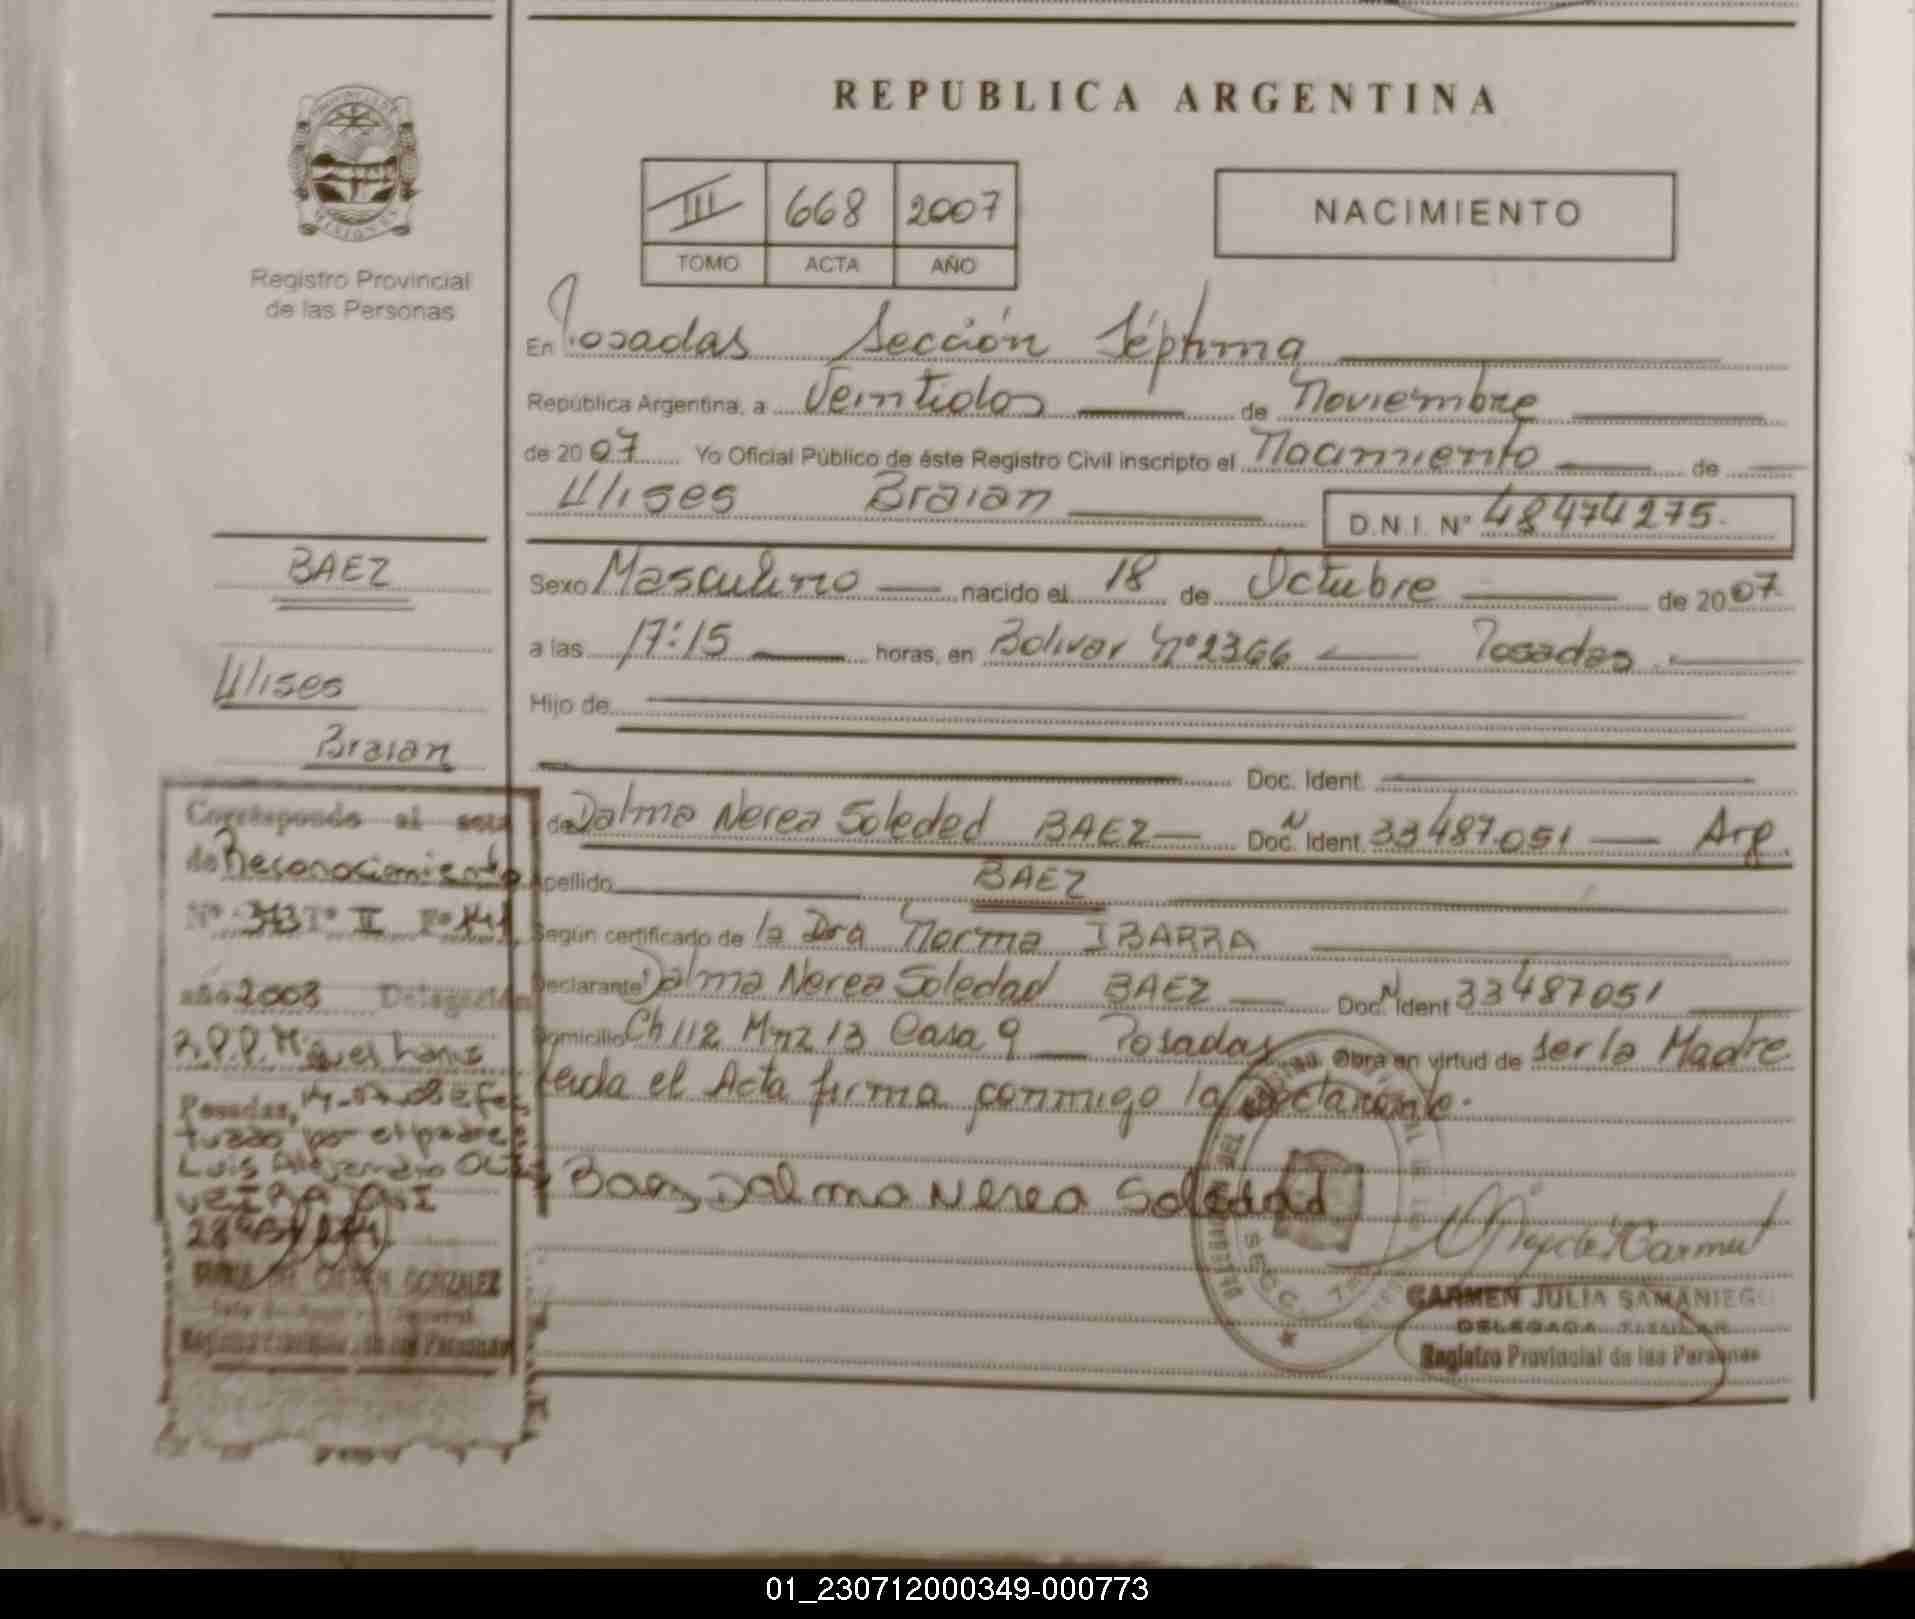 REPUBLICA ARGENTINA
Registro Provincial
de las Personas
III 668 2007
TOMO ACTA AÑO
NACIMIENTO
En Posadas Sección Séptima
República Argentina, a Veintidos de Noviembre
de 2007 Yo Oficial Público de éste Registro Civil inscripto el Nacimiento de
Ulises Braian D.N.I. Nº 48474275.
Sexo Masculino nacido el 18 de Octubre de 2007
a las 17:15 horas, en Bolivar Nº 2366 Posadas
Hijo de
Doc. Ident.
de Dalma Nerea Soledad BAEZ Doc. N Ident. 33487.051 Arg.
Apellido BAEZ
Según certificado de la Dra Norma IBARRA
Declarante Dalma Nerea Soledad BAEZ Doc. N Ident 33487051
Domicilio Ch 112 Mnz 13 Casa 9 Posadas Obra en virtud de ser la Madre
leida el Acta firma conmigo la declarante.
Baez Dalma Nerea Soledad
SECC. 7
CARMEN JULIA SAMANIEGO
DELEGADA TITULAR
Registro Provincial de las Personas
BAEZ
Ulises
Braian
Corresponde al acta
de Reconocimiento
Nº 313 Tº II Fº 141
año 2008 Delegación
R.P.P. Miguel Lanus
Posadas, efec
tuado por el padre
Luis Alejandro OLI
VEIRA DNI
DEL CARMEN GONZALEZ
Registro Provincial de las Personas
01_230712000349-000773